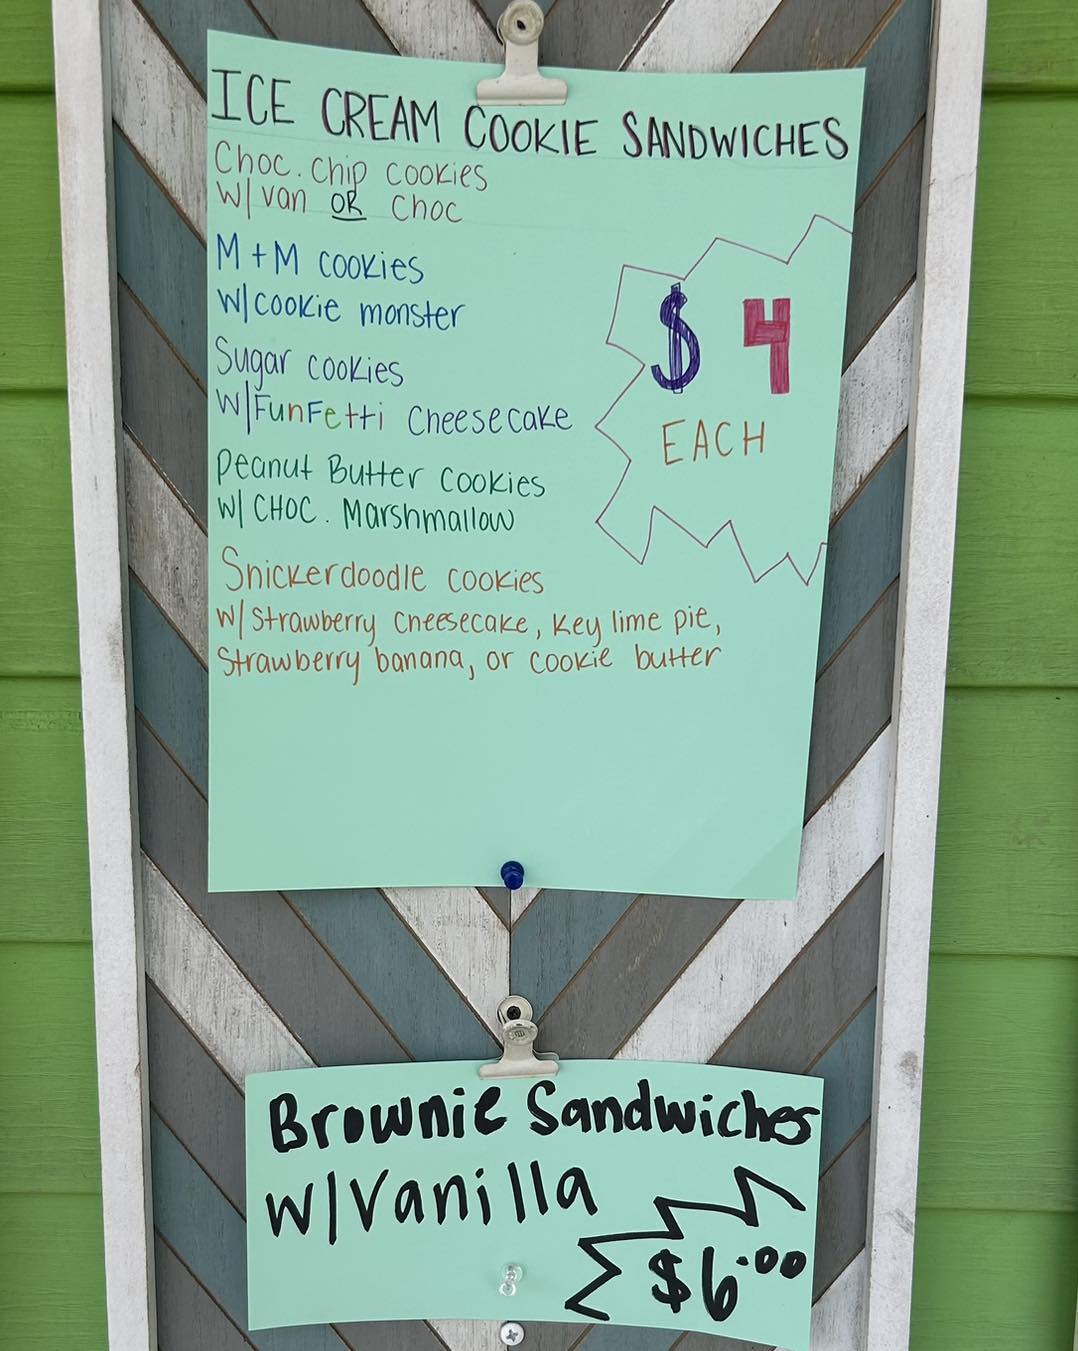 ICE CREAM COOKIE SANDWICHES
Choc. Chip cookies
w/van OR Choc
M+M cookies
w/cookie monster
Sugar cookies
w/FunFetti Cheesecake
Peanut Butter cookies
w/ CHOC. Marshmallow
Snickerdoodle cookies
w/strawberry cheesecake, key lime pie,
strawberry banana, or cookie butter
$ 4
EACH
Brownie Sandwiches
w/Vanilla
$6.00